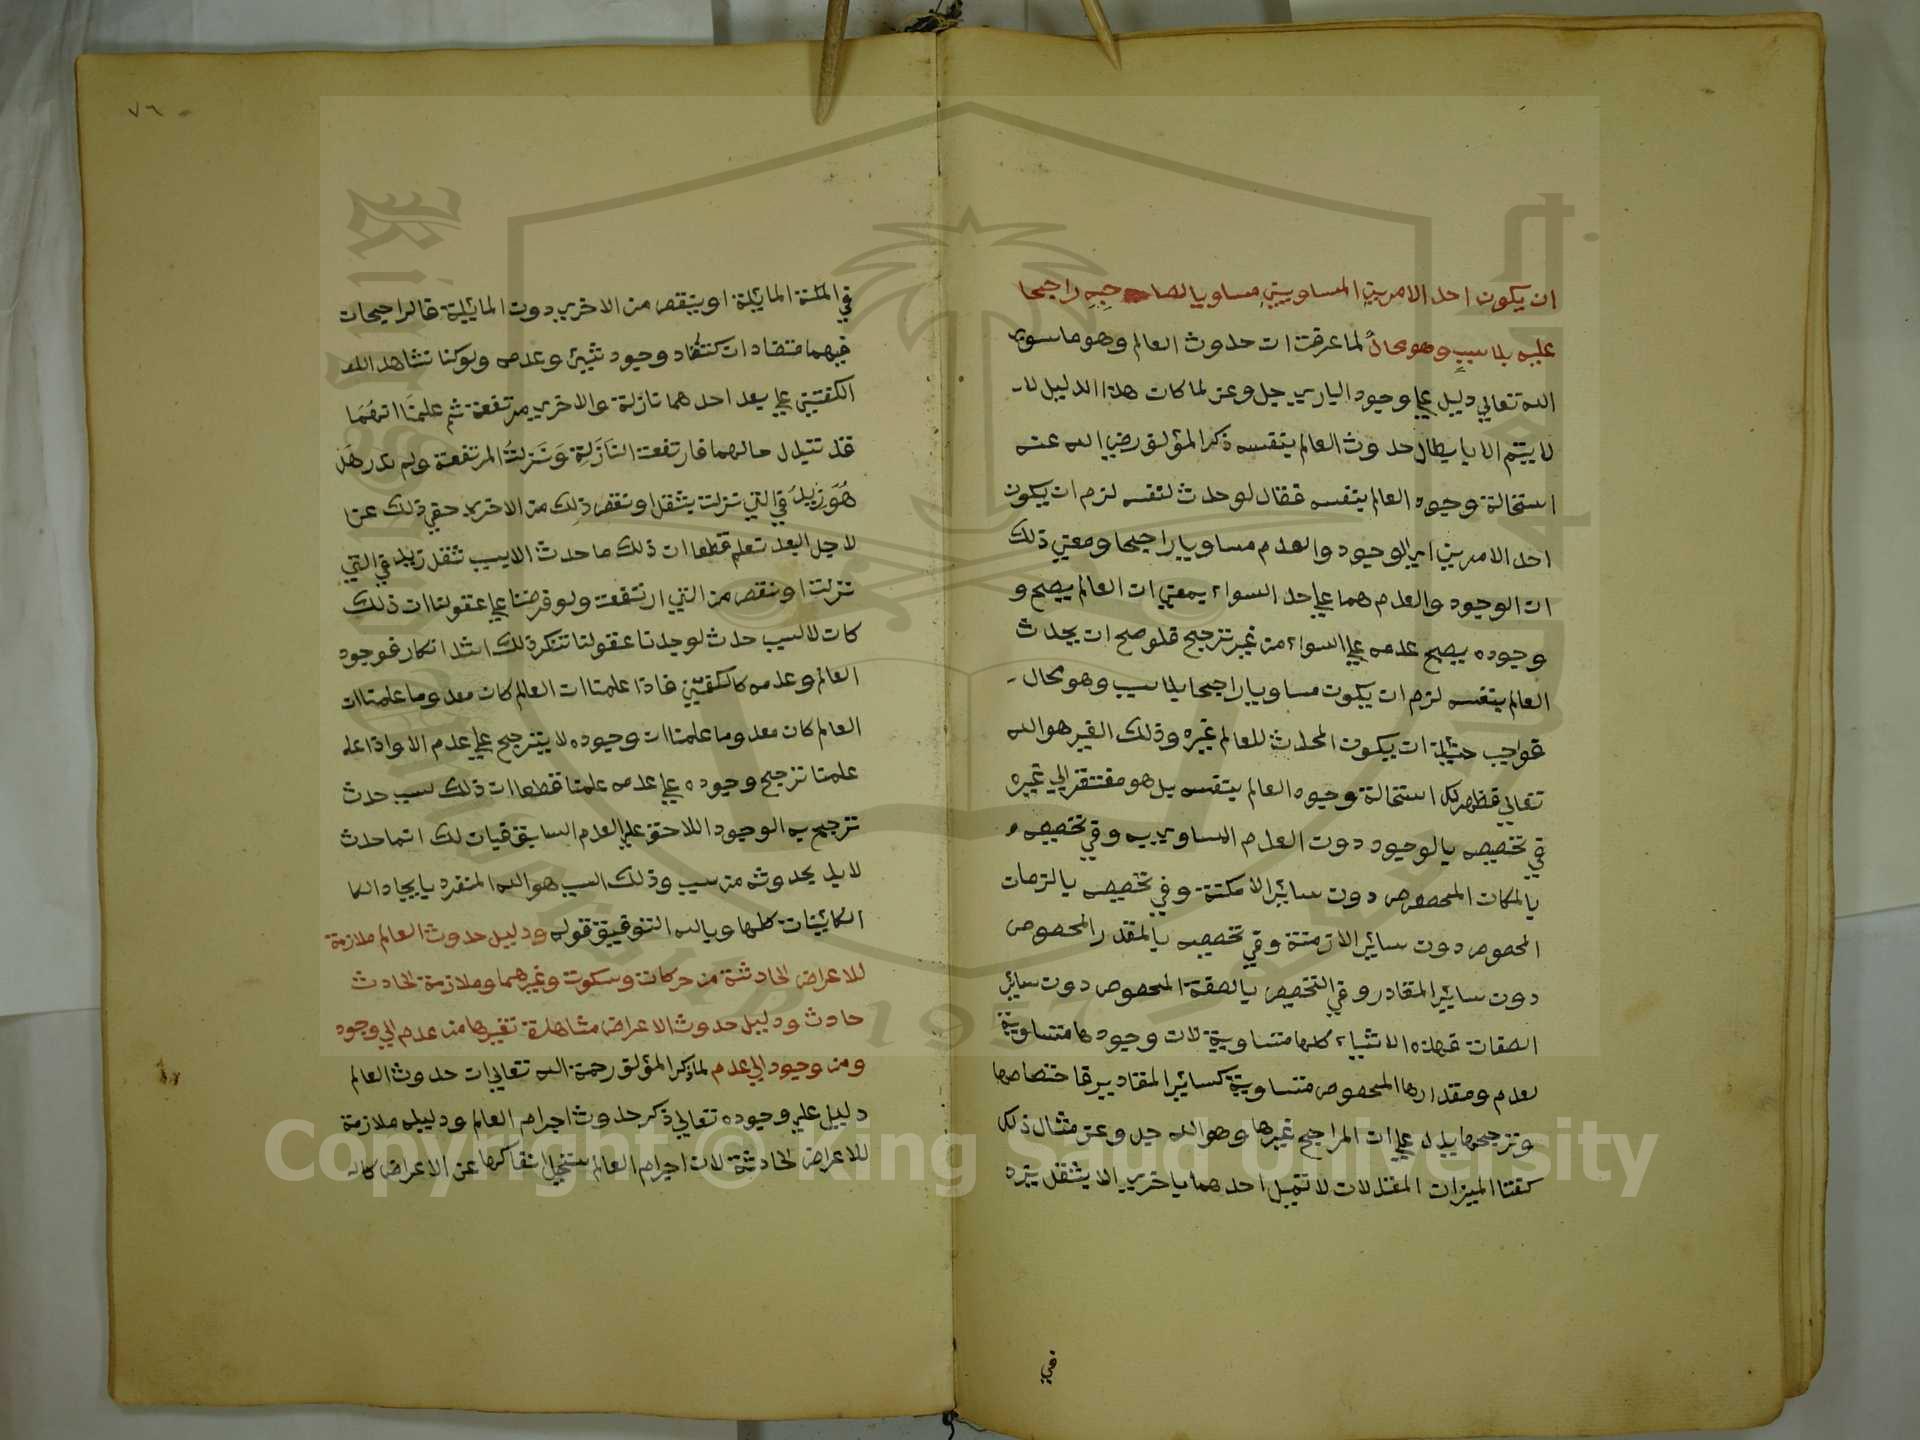 ان يكون احد الامرين المساويين مساويا لصاحبه راجحا
عليه بلا سبب وهو محال لما عرفت ان حدوث العالم وهو ما سوي
الله تعالي دليل علي وجود الباري جل وعز لما كان هذا الدليل لا
لا يتم الا بابطال حدوث العالم بنفسه ذكر المؤلف رضي الله عنه
استحالة وجود العالم بنفسه فقال لو حدث لنفسه لزم ان يكون
احد الامرين اي الوجود والعدم مساويا راجحا ومعني ذلك
ان الوجود والعدم هما علي حد السواء بمعني ان العالم يصح و
وجوده يصح عدمه علي السواء من غير ترجيح فلو صح ان يحدث
العالم بنفسه لزم ان يكون مساويا راجحا بلا سبب وهو محال
فواجب حينئذ ان يكون المحدث للعالم غيره وذلك الغير هو الله
تعالي فظهر لك استحالة وجود العالم بنفسه بل هو مفتقر الي غيره
في تخصيصه بالوجود دون العدم المساوي به وفي تخصيصه
بالمكان المخصوص دون ساير الامكنة وفي تخصيصه بالزمان
المخصوص دون ساير الازمنة وفي تخصيصه بالمقدر المخصوص
دون ساير المقادر وفي التخصيص بالصفة المخصوص دون ساير
الصفات فهذه الاشياء كلها متساوية لان وجودها متساوية
لعدم ومقدارها المخصوص متساوية كساير المقادير فاختصاصها
وترجيحها يدل علي ان المراجح غيرها وهو الله جل وعز مثال ذلك
كفتا الميزان المعتدلان لا تميل احدهما باخري الا بثقل يزد
في
٧٦
في الكفة المايلة او ينقص من الاخري دون المايلة فالراجحان
فيهما متضادان كتضاد وجود شيئ وعدمه ولو كنا نشاهد
الكفتين علي بعد احدهما نازلة والاخري مرتفعة ثم علمنا انهما
قد تبدل حالهما فارتفعت النازلة ونزلت المرتفعة ولم ندر هل
هو زيد في التي نزلت بثقل او نقص ذلك من الاخري خفي ذلك عن
لاجل البعد نعلم قطعا ان ذلك ما حدث الا بسبب ثقل زيد في التي
نزلت او نقص من التي ارتفعت ولو فرضنا علي عقولنا ان ذلك
كان لا لسبب حدث لوجدنا عقولنا تنكر ذلك اشد انكار فوجود
العالم وعدمه كالكفتين فاذا علمنا ان العالم كان معدوما علمنا ان
العالم كان معدوما علمنا ان وجوده لا يترجح علي عدم الا واذا عله
علمنا ترجح وجوده علي عدمه علمنا قطعا ان ذلك لسبب حدث
ترجح به الوجود اللاحق علي العدم السابق فبان لك انما حدث
لا بد بحدوثه من سبب وذلك السبب هو الله المنفرد بايجاد الكا
الكاينات كلها وبالله التوفيق قوله ودليل حدوث العالم ملازمة
للاعراض الحادثة من حركات وسكون وغيرهما وملازمة الحادث
حادث ودليل حدوث الاعراض مشاهدة تغيرها من عدم الي وجود
ومن وجود الي عدم لما ذكر المؤلف رحمة الله تعالي ان حدوث العالم
دليل علي وجوده تعالي ذكر حدوث اجرام العالم ودليله ملازمة
للاعراض الحادثة لان اجرام العالم يستحيل انفاكها عن الاعراض كالـ
Copyright © King Saud University